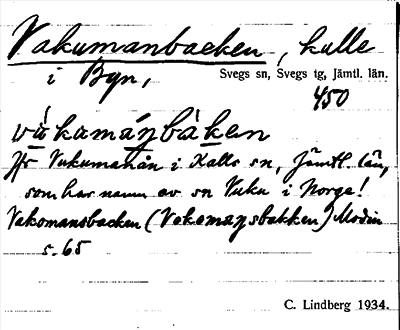 Vakumanbacken, kulle
i Byn,
Svegs sn, Svegs tg, Jämtl. län.
450
vùkamáŋbàken
Jfr Vukumanån i Kalls sn, Jämtl. län,
som har namn av sn Vuku i Norge!
Vakomansbacken (Vokomaŋsbakken) Modin
s. 65
C. Lindberg 1934.